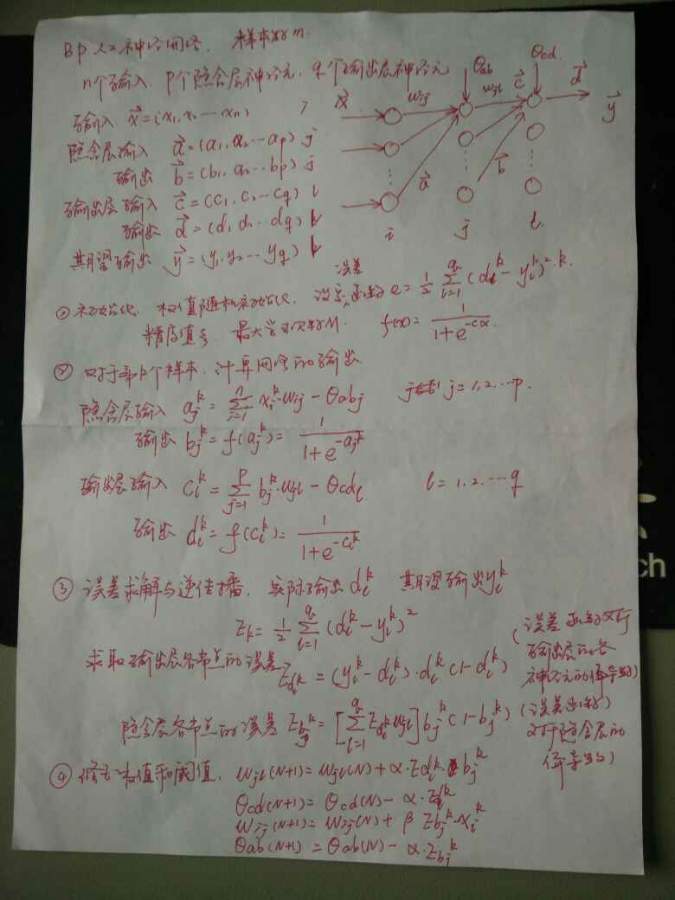 BP人工神经网络, 样本数m.
n个输入, p个隐含层神经元, q个输出层神经元
输入 x⃗=(x₁, x₂ ⋯ xₙ) i
隐含层输入 a⃗=(a₁, a₂ ⋯ aₚ) j
输出 b⃗=(b₁, a₂ ⋯ bₚ) j
输出层输入 c⃗=(c₁, c₂ ⋯ c_q) l
输出 d⃗=(d₁ d₂ ⋯ d_q) l
期望输出 y⃗=(y₁, y₂ ⋯ y_q) l
x⃗ w_ij θ_ab w_jl c⃗ θ_cd d⃗ y⃗
a⃗ b⃗
i j l
① 初始化, 权值随机初始化, 误差函数 e = 1/2 Σ_{l=1}^{q} (d_l^k − y_l^k)². k.
精度值ε 最大学习次数M. f(x) = 1/(1+e^{-cx}).
② 对于第k个样本, 计算网络的输出
隐含层输入 a_j^k = Σ_{i=1}^{n} x_i^k·w_ij − θab_j j=1,2,⋯p.
输出 b_j^k = f(a_j^k) = 1/(1+e^{-a_j^k})
输出层输入 c_l^k = Σ_{j=1}^{p} b_j^k·w_jl − θcd_l l=1,2,⋯q
输出 d_l^k = f(c_l^k) = 1/(1+e^{-c_l^k})
③ 误差求解与逆传播, 实际输出 d_l^k 期望输出 y_l^k
E_k = 1/2 Σ_{l=1}^{q} (d_l^k − y_l^k)²
求取输出层各节点的误差 E_{d_l^k} = (y_l^k − d_l^k)·d_l^k (1−d_l^k)
(误差函数对
输出层的各
神经元的偏导数)
隐含层各节点的误差 E_{b_j^k} = [Σ_{l=1}^{q} E_{d_l^k} w_jl] b_j^k (1−b_j^k)
(误差函数
对于隐含层的
偏导数)
④ 修正权值和阈值, w_jl(N+1) = w_jl(N) + α·E_{d_l^k}·b_j^k
θcd(N+1) = θcd(N) − α·E_{d_l^k}
w_ij(N+1) = w_ij(N) + β E_{b_j^k}·x_i^k
θab(N+1) = θab(N) − α·E_{b_j^k}
ch